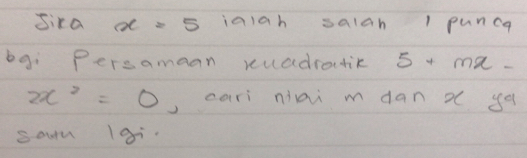 Jika x = 5 ialah salah 1 punca
bgi persamaan kuadratik 5 + mx -
2x² = 0, cari nilai m dan x yg
satu lgi.